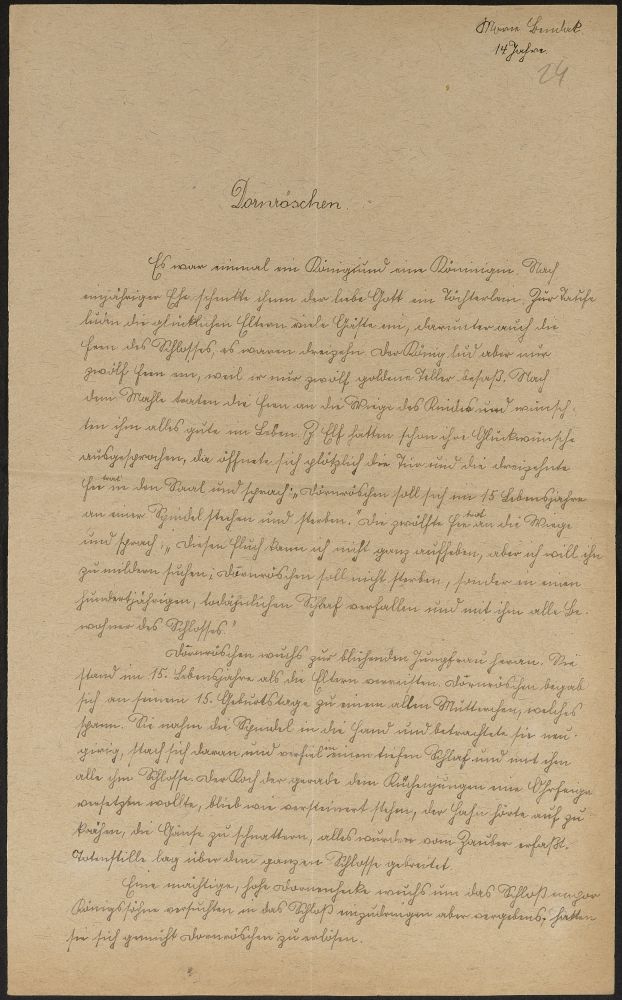 Marie
14 Jahre.
24
Dornröschen.
Es war einmal ein König und eine Königin. Nach
einjähriger Ehe schenkte ihnen der liebe Gott ein Töchterlein. Zur Taufe
luden die glücklichen Eltern viele Gäste ein, darunter auch die
Feen des Schlosses, es waren dreizehn. Der König lud aber nur
zwölf Feen ein, weil er nur zwölf goldene Teller besaß. Nach
dem Mahle traten die Feen an die Wiege des Kindes und wünsch-
ten ihm alles gute im Leben. Elf hatten schon ihre Glückwünsche
ausgesprochen, da öffnete sich plötzlich die Türe und die dreizehnte
Fee trat in den Saal und sprach: „Dornröschen soll sich im 15 Lebensjahre
an einer Spindel stechen und sterben." Die zwölfte Fee trat an die Wiege
und sprach: „Diesen Fluch kann ich nicht ganz aufheben, aber ich will ihn
zu mildern suchen; Dornröschen soll nicht sterben, sonder in einen
hundertjährigen, todähnlichen Schlaf verfallen und mit ihm alle Be-
wohner des Schlosses."
Dornröschen wuchs zur blühenden Jungfrau heran. Sie
stand im 15. Lebensjahre als die Eltern verreisten. Dornröschen begab
sich an seinem 15. Geburtstage zu einem alten Mütterchen, welches
spann. Sie nahm die Spindel in die Hand und betrachtete sie neu-
gierig, stach sich daran und verfiel in einen tiefen Schlaf und mit ihm
alle im Schlosse. Der Koch der gerade dem Küchenjungen eine Ohrfeige
versetzen wollte, blieb wie versteinert stehen, der Hahn hörte auf zu
krähen, die Gänse zu schnattern, alles wurde vom Zauber erfaßt.
Totenstille lag über dem ganzen Schlosse gebreitet.
Eine mächtige, hohe Dornenhecke wuchs um das Schloß empor
Königssöhne versuchten in das Schloß einzudringen aber vergebens, hatten
sie sich gemüht Dornröschen zu erlösen.